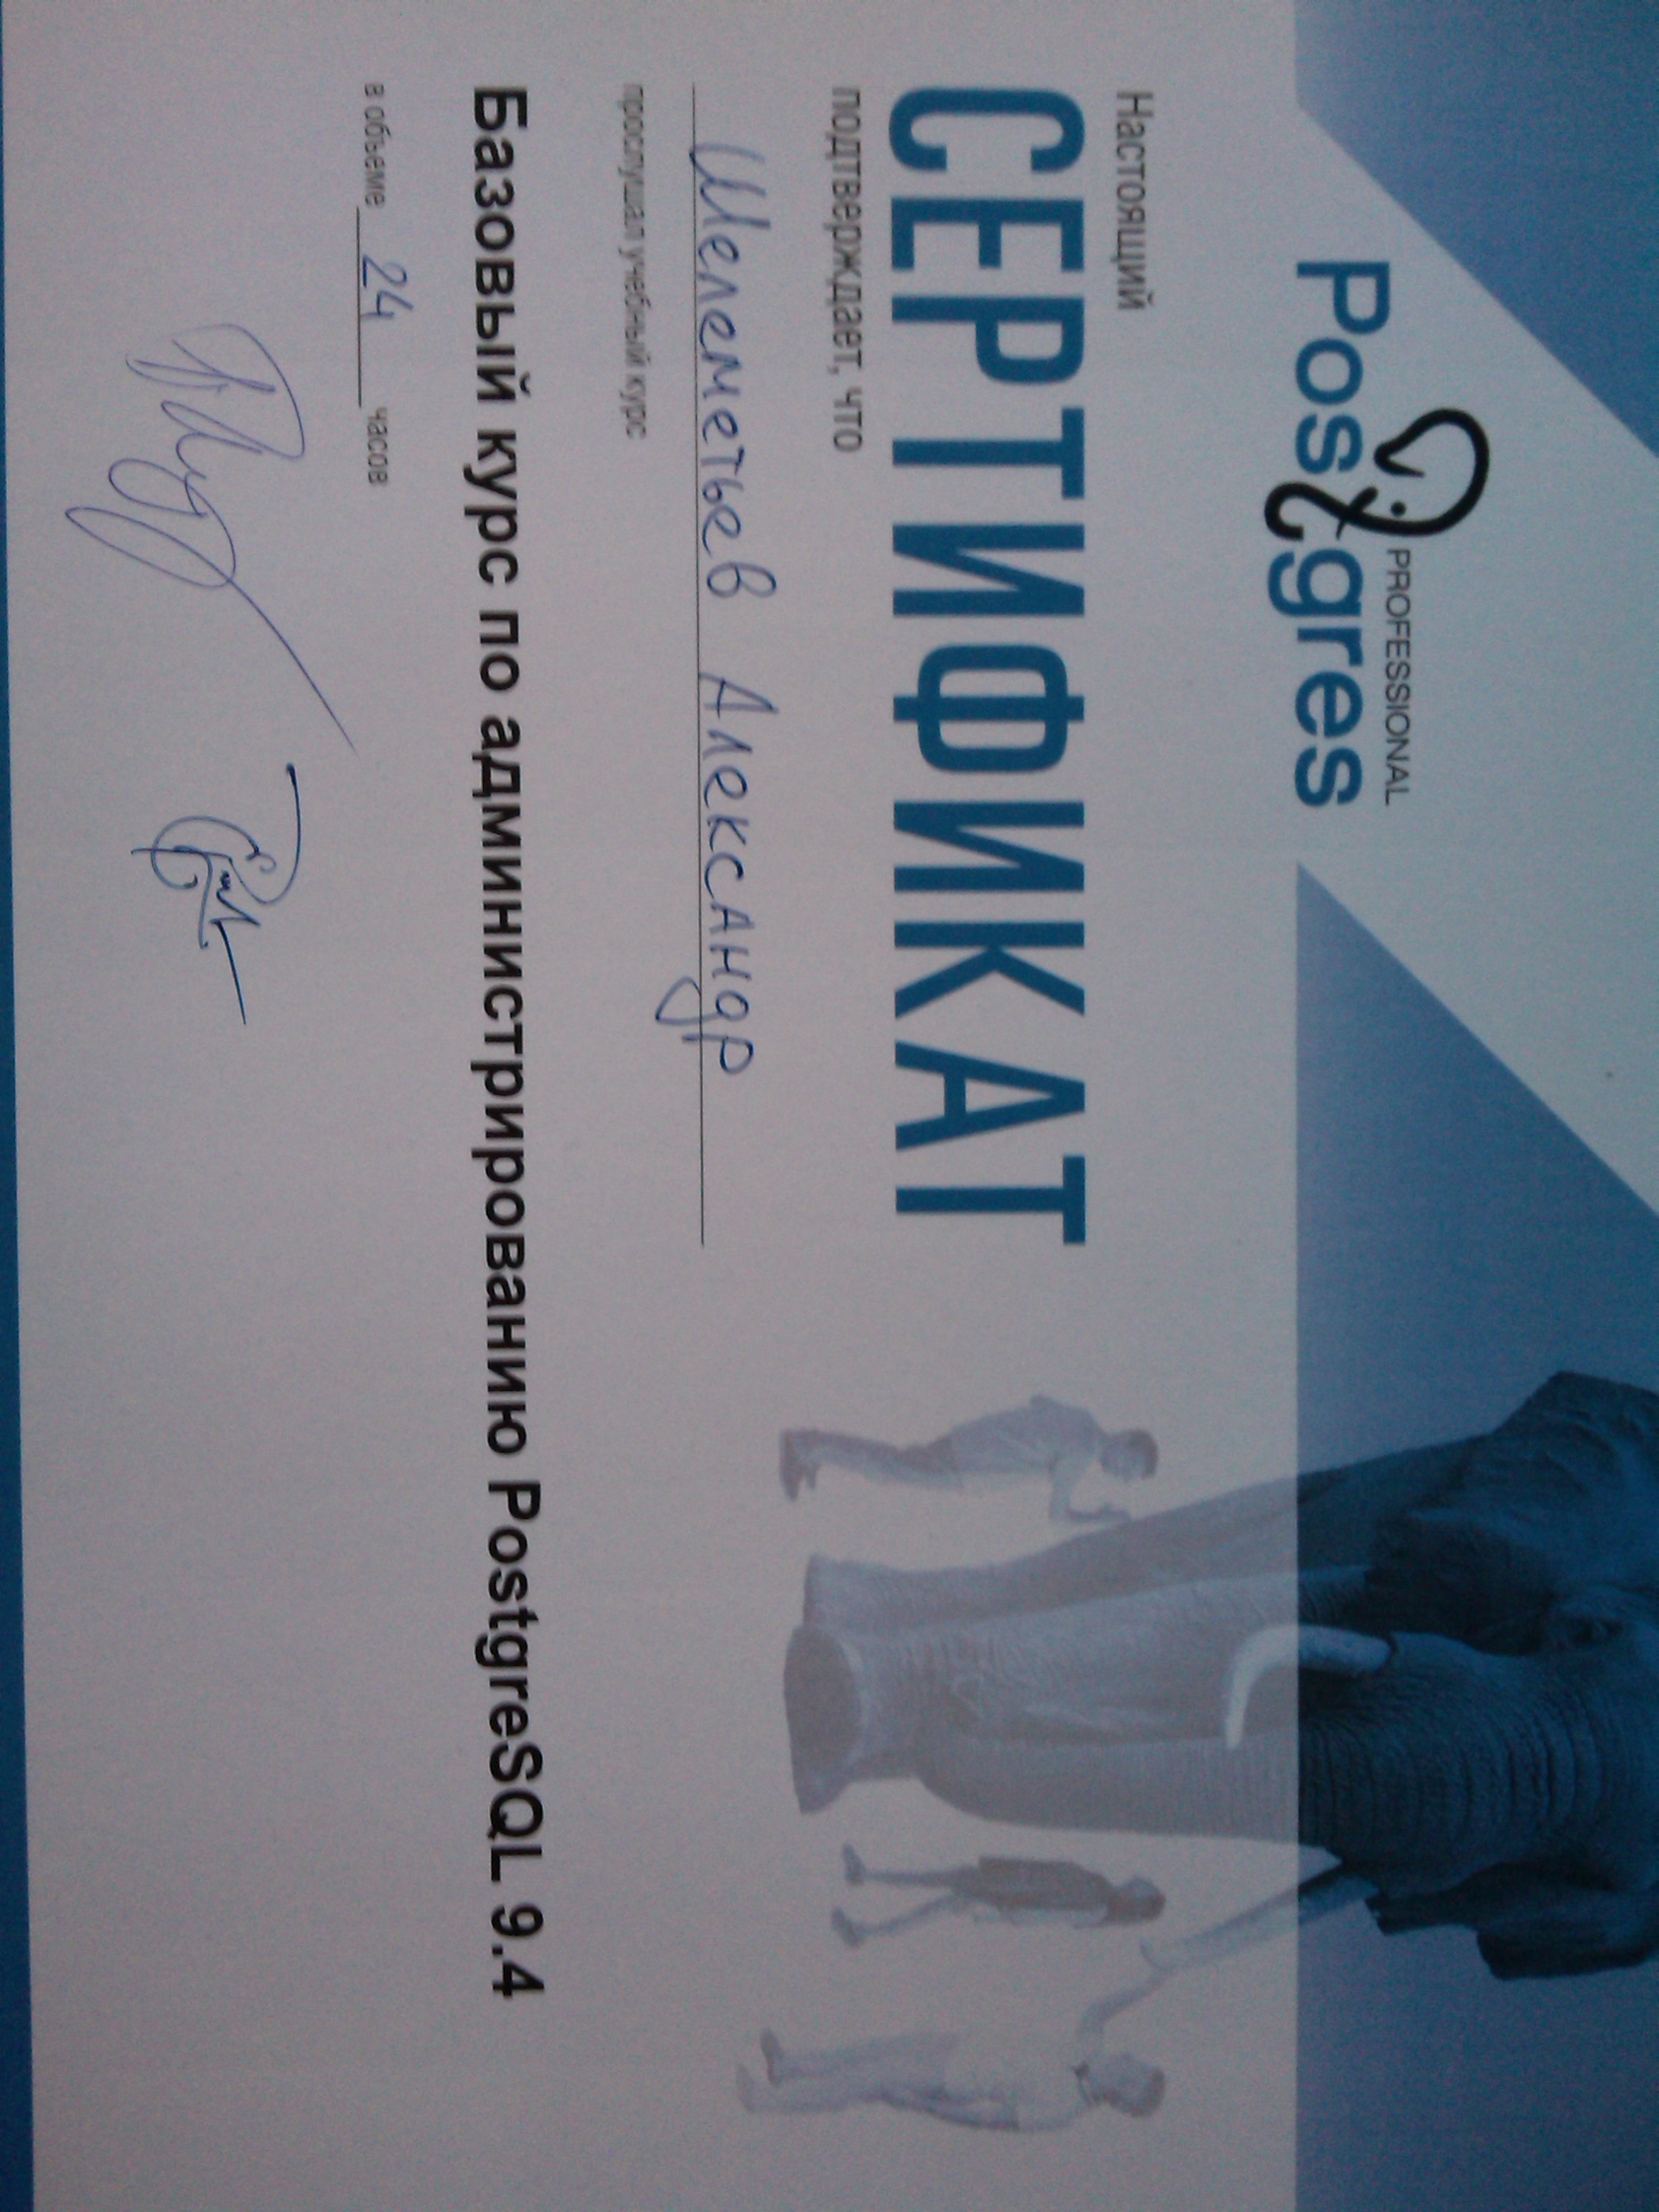 PROFESSIONAL
Postgres
Настоящий
СЕРТИФИКАТ
подтверждает, что
Шелеметьев Александр
прослушал учебный курс
Базовый курс по администрированию PostgreSQL 9.4
в объеме 24 часов